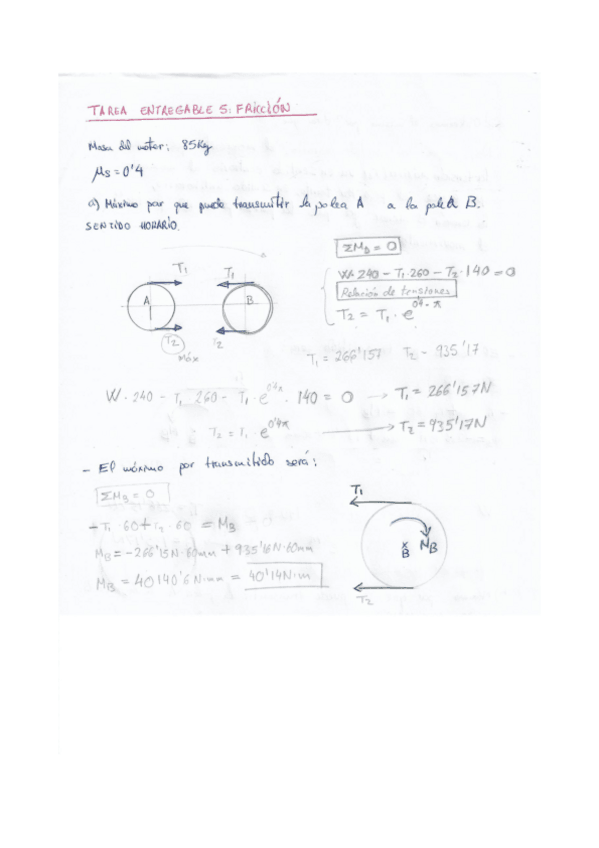 TAREA ENTREGABLE 5: FRICCIÓN
Masa del motor: 85Kg
μs = 0'4
a) Máximo par que puede transmitir la polea A a la polea B.
SENTIDO HORARIO.
ΣM_D = 0
W·240 - T₁·260 - T₂·140 = 0
Relación de tensiones
T₂ = T₁ · e^0'4·π
T₁ T₁
A B
T₂ T₂
Máx
T₁ = 266'157 T₂ - 935'17
W·240 - T₁ 260 - T₁·e^0'4π · 140 = 0 → T₁ = 266'157N
T₂ = T₁ · e^0'4π → T₂ = 935'17N
- El máximo par transmitido será:
ΣM_B = 0
-T₁·60 + T₂·60 = M_B
M_B = -266'15N·60mm + 935'16N·60mm
M_B = 40140'6N·mm = 40'14N·m
T₁
B M_B
T₂